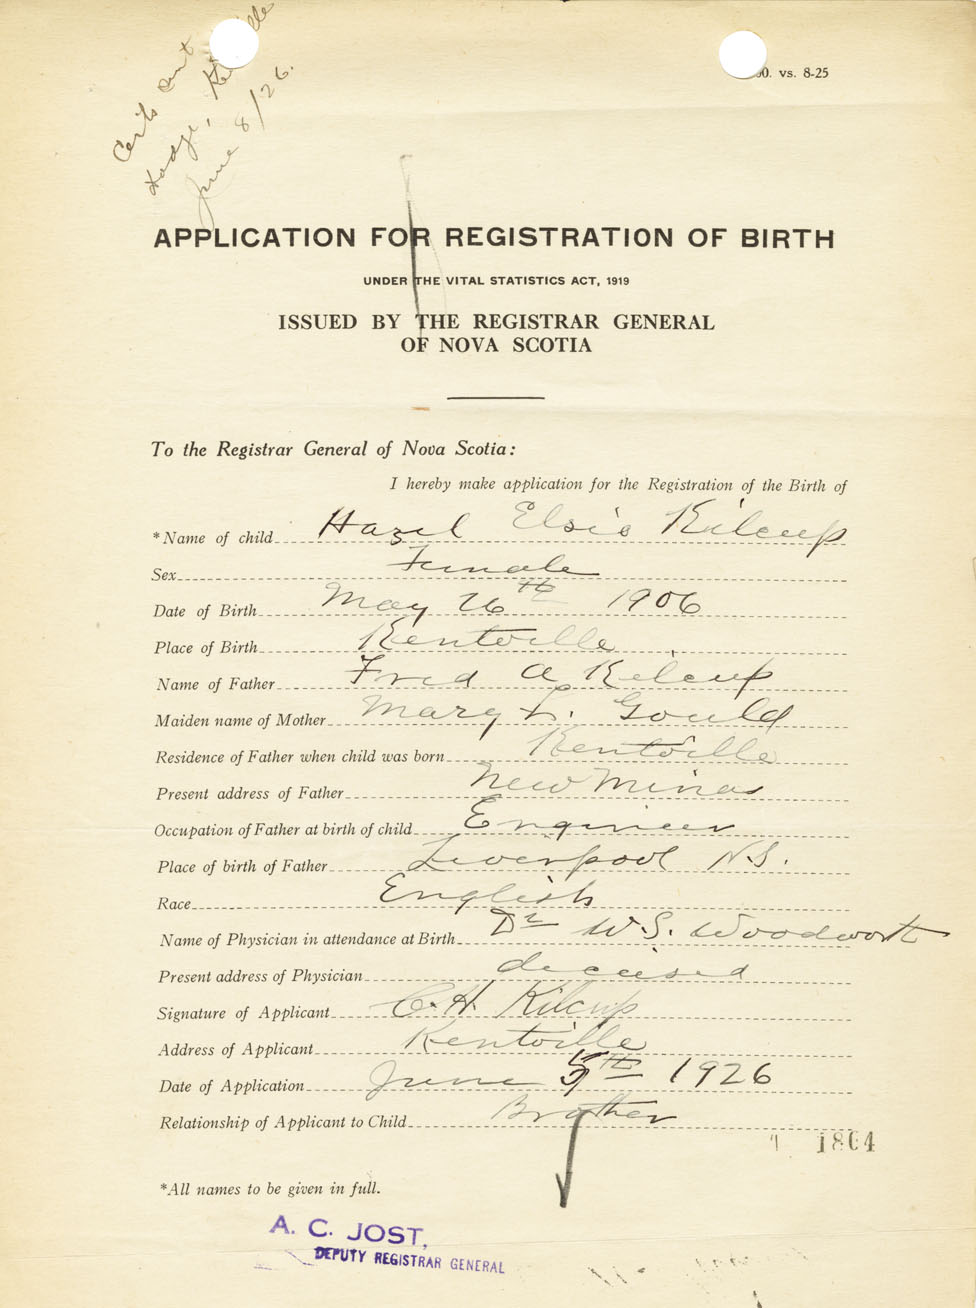 Certs sent
Hodge, Kentville
June 8/26.
00. vs. 8-25
APPLICATION FOR REGISTRATION OF BIRTH
UNDER THE VITAL STATISTICS ACT, 1919
ISSUED BY THE REGISTRAR GENERAL
OF NOVA SCOTIA
To the Registrar General of Nova Scotia:
I hereby make application for the Registration of the Birth of
*Name of child Hazel Elsie Kilcup
Sex Female
Date of Birth May 26th 1906
Place of Birth Kentville
Name of Father Fred A Kilcup
Maiden name of Mother Mary L. Gould
Residence of Father when child was born Kentville
Present address of Father New Minas
Occupation of Father at birth of child Engineer
Place of birth of Father Liverpool N.S.
Race English
Name of Physician in attendance at Birth Dr W.S. Woodworth
Present address of Physician deceised
Signature of Applicant C. H. Kilcup
Address of Applicant Kentville
Date of Application June 5th 1926
Relationship of Applicant to Child Brother
1864
*All names to be given in full.
A. C. JOST,
DEPUTY REGISTRAR GENERAL